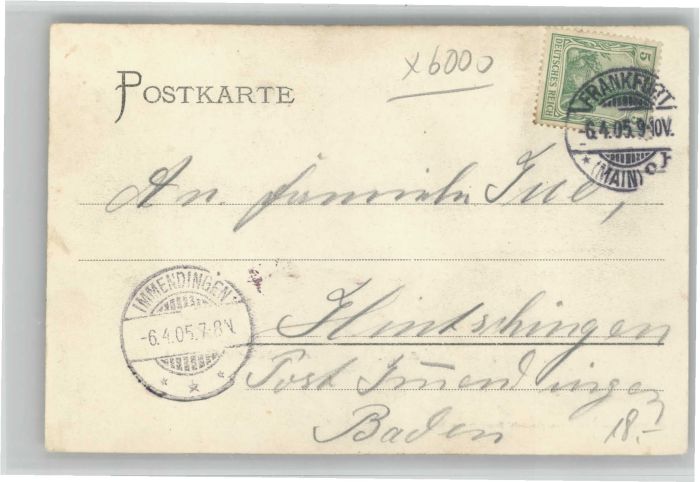 x6000
5
DEUTSCHES REICH
POSTKARTE
FRANKFURT
-6.4.05.9-10V.
* (MAIN)
An familie
IMMENDINGEN
-6.4.05.7-8N.
* * *
Hintschingen
Post Immendingen
Baden
18.-